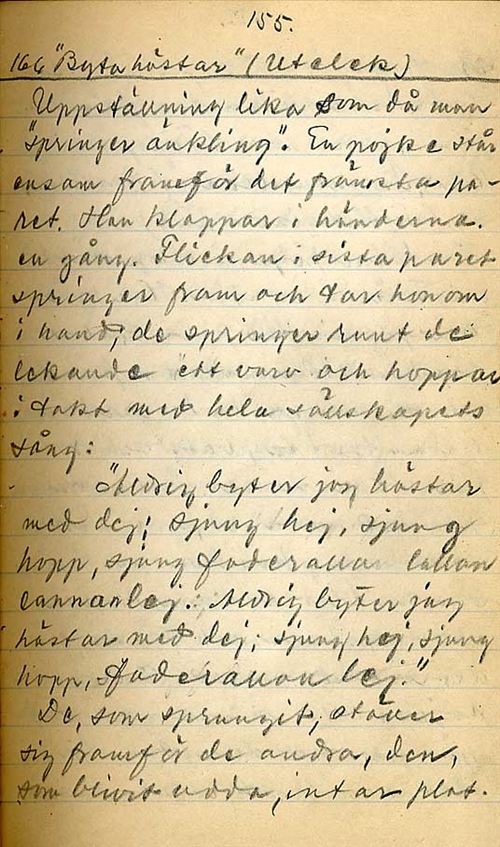 155.
166 "Byta hästar" (Utelek)
Uppställning lika som då man
"springer änkling". En pojke står
ensam framför det främsta pa-
ret. Han klappar i händerna.
en gång. Flickan i sista paret
springer fram och tar honom
i hand, de springer runt de
lekande ett varv och hoppar
i takt med hela sällskapets
sång:
"Aldrig byter jag hästar
med dej; sjung hej, sjung
hopp, sjung faderallan lallan
lej. Aldrig byter jag
hästar med dej; sjung hej, sjung
hopp, faderallan lej."
De, som sprungit, ställer
sig framför de andra, den,
som blivit udda, intar plat-